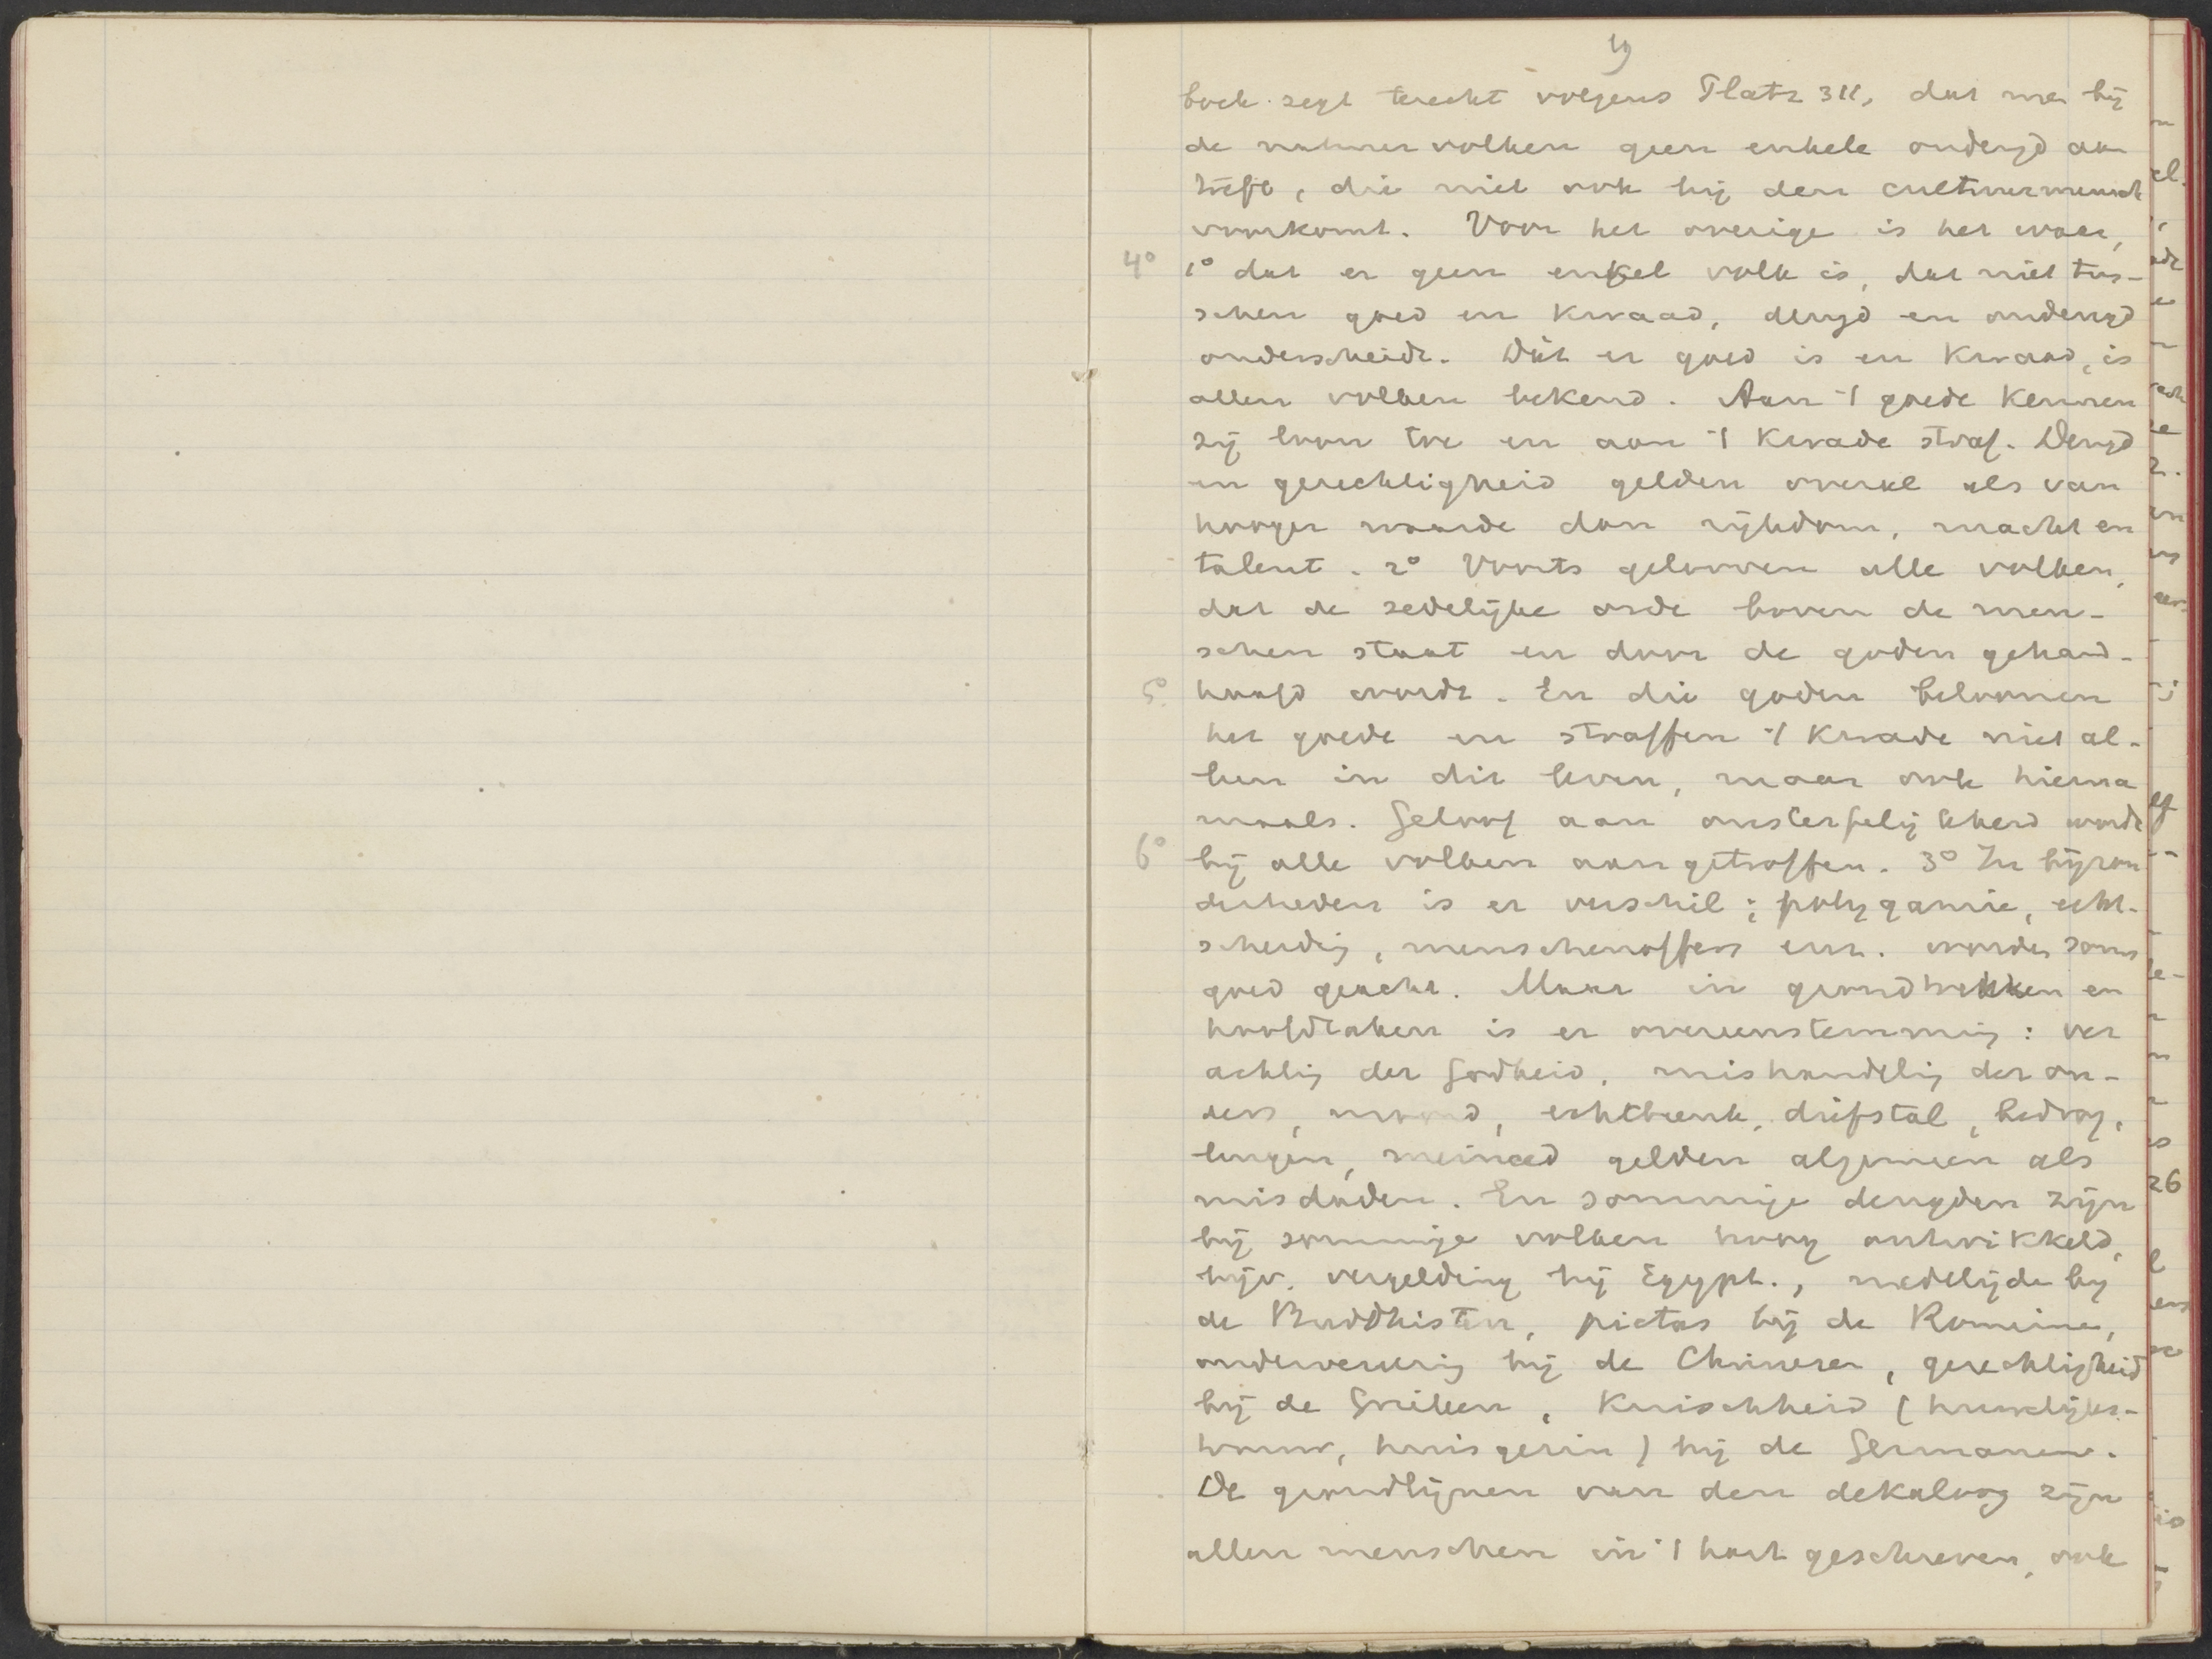 19
boek zegt terecht volgens Platz 311, dat men bij
de natuurvolken geen enkele ondeugd aan
treft, die niet ook bij den cultuurmensch
voorkomt. Voor het overige is het waar,
4° 1° dat er geen enkel volk is, dat niet tus-
schen goed en kwaad, deugd en ondeugd
onderscheidt. Dát er goed is en kwaad, is
allen volken bekend. Aan 't goede kennen
zij loon toe en aan 't kwade straf. Deugd
en gerechtigheid gelden overal als van
hooger waarde dan rijkdom, macht en
talent. 2° Voorts gelooven alle volken,
dat de zedelijke orde boven de men-
schen staat en door de goden gehand-
5° haafd wordt. En die goden beloonen
het goede en straffen 't kwade niet al-
leen in dit leven, maar ook hierna
maals. Geloof aan onsterfelijkheid wordt
6° bij alle volken aangetroffen. 3° In bijzon
derheden is er verschil; polygamie, echt-
scheidig, menschenoffers enz. worden soms
goed geacht. Maar in grondtrekken en
hoofdzaken is er overeenstemmig: ver
achtig der Godheid, mishandelig der ou-
ders, moord, echtbreuk, diefstal, bedrog,
leugen, meineed gelden algemeen als
misdaden. En sommige deugden zijn
bij sommige volken hoog ontwikkeld,
bijv. vergelding bij Egypt., medelijde bij
de Buddhisten, pietas bij de Romeine,
onderwerpig bij de Chineezen, gerechtigheid
bij de Grieken, Kuischheid (huwelijks-
trouw, huisgezin) bij de Germanen.
De grondlijnen van den dekaloog zijn
allen menschen in 't hart geschreven, ook